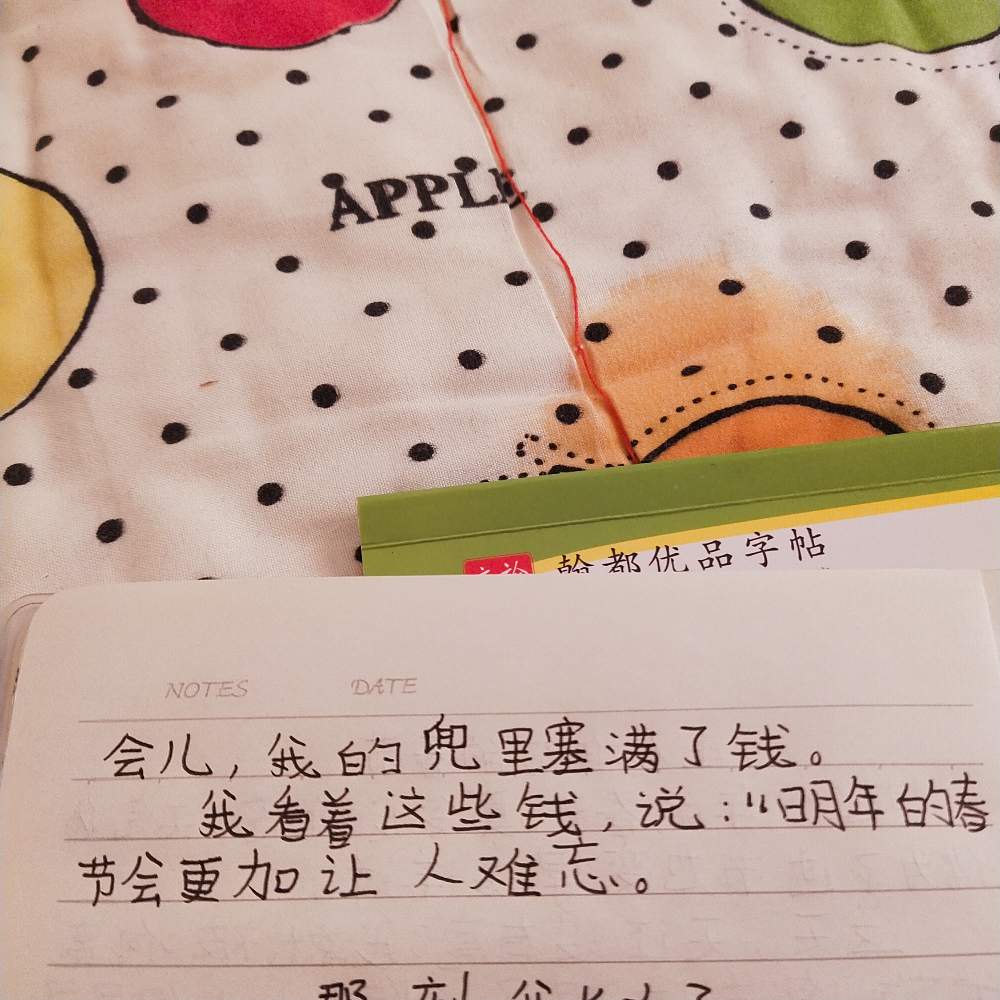 APPLE
翰都优品字帖
NOTES DATE
会儿，我的兜里塞满了钱。
我看着这些钱，说："明年的春
节会更加让人难忘。
那